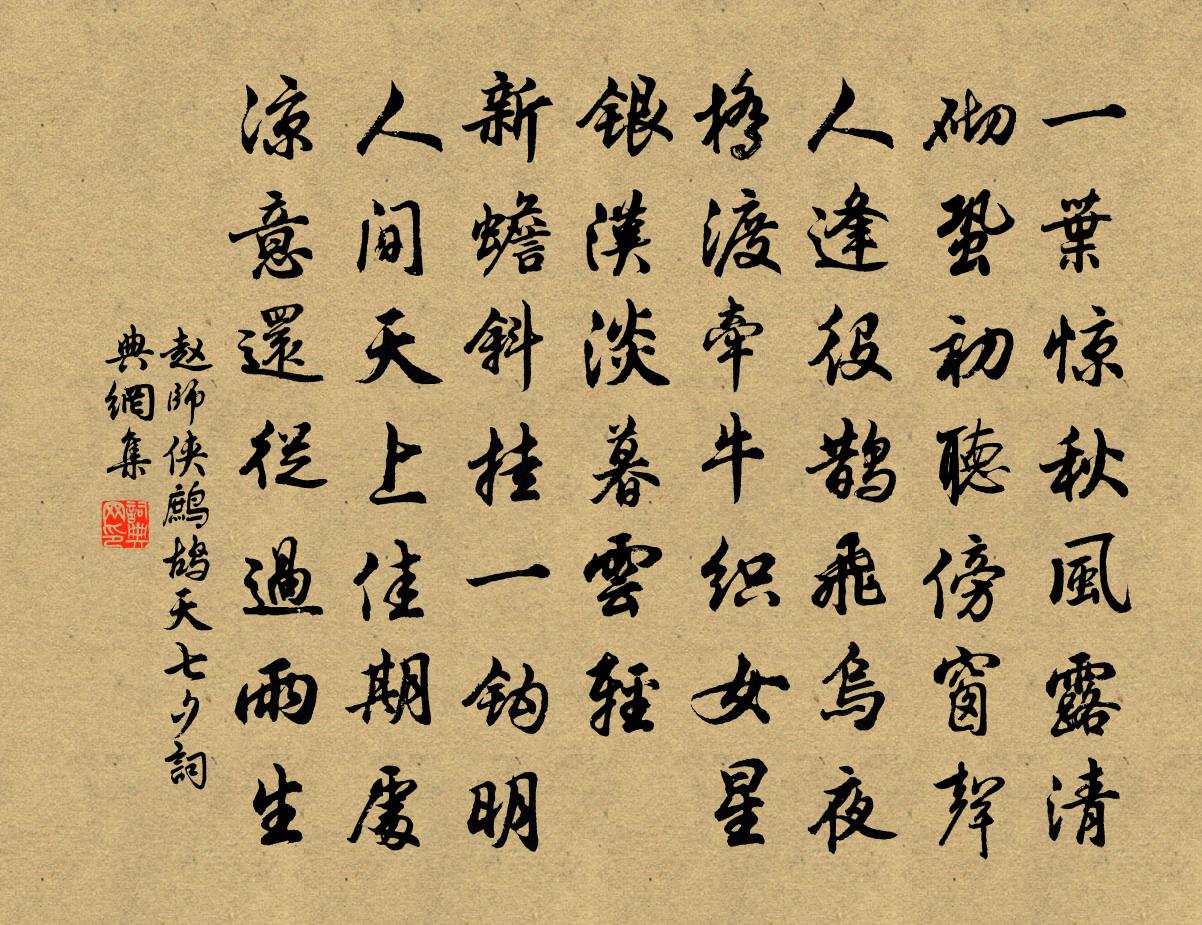 一葉惊秋風露清
砌蛩初聽傍窗聲
人逢役鵲飛烏夜
橋渡牽牛织女星
銀漢淡暮雲輕
新蟾斜挂一鈎明
人間天上佳期處
涼意還從過雨生
赵師侠鷓鴣天七夕詞
典網集
詞典网印